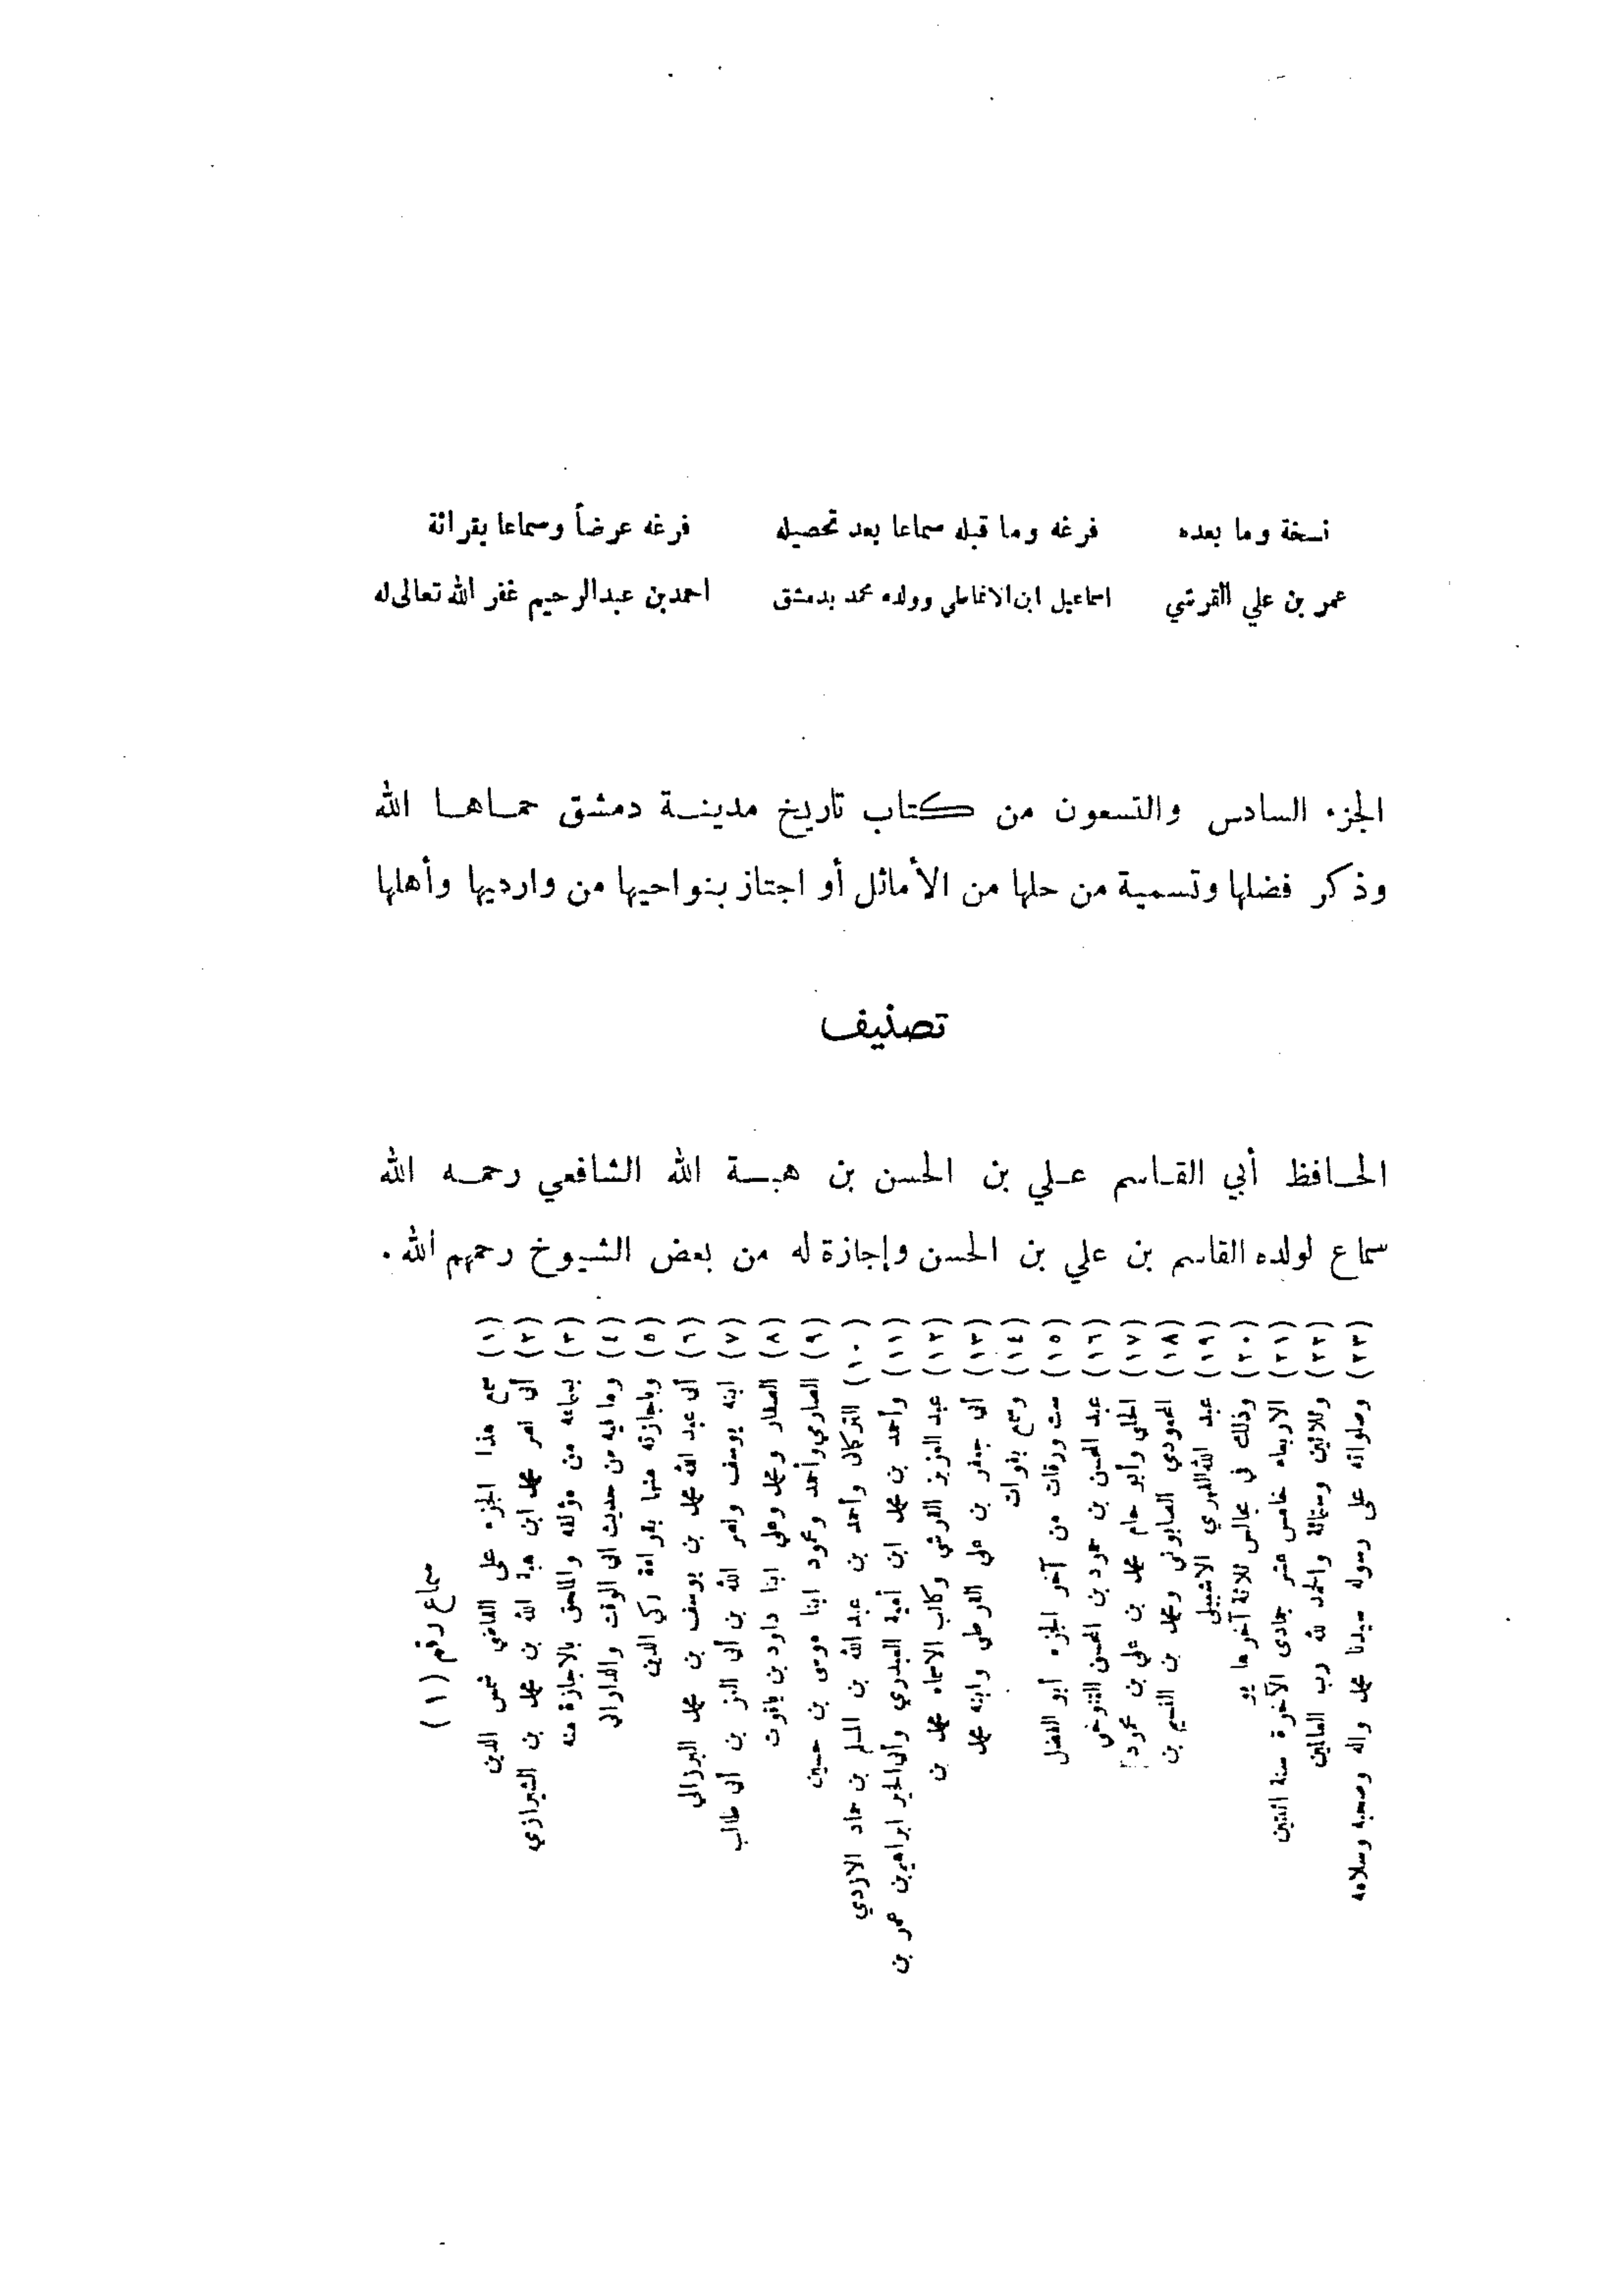 نسخة وما بعده فرغه وما قبله سماعا بعد تحصيله فرغه عرضاً وسماعا بقرائة
عمر بن علي القرشي اسماعيل ابن الانماطي وولده محمد بدمشق احمد بن عبدالرحيم غفر الله تعالى له
الجزء السادس والتسعون من كتاب تاريخ مدينة دمشق حماها الله
وذكر فضلها وتسمية من حلها من الأماثل أو اجتاز بنواحيها من وارديها وأهلها
تصنيف
الحافظ أبي القاسم علي بن الحسن بن هبة الله الشافعي رحمه الله
سماع لولده القاسم بن علي بن الحسن وإجازة له من بعض الشيوخ رحمهم الله .
سماع رقم (١)
(١) سمع هذا الجزء على القاضي شمس الدين
(٢) أبي نصر محمد ابن هبة الله بن محمد بن الشيرازي
(٣) بسماعه من مؤلفه والملحق بالاجازة منه
(٤) وما فيه من حديث ابي الوقت والداراني
(٥) وباجازته منها بقراءة زكي الدين
(٦) أبي عبد الله محمد بن يوسف بن محمد البرزالي
(٧) ابنه يوسف ونصر الله بن أبي العز بن أبي طالب
(٨) الصفار ومحمد وعلي ابنا داود بن ياقوت
(٩) الصارمي وأحمد ومحمود ابنا موسى بن حسين
(١٠) التركماني وأحمد بن عبد الله بن المسلم بن حماد الازدي
(١١) وأحمد بن محمد ابن أمية العبدري وأبي الخير ابراهيم بن عمر بن
(١٢) عبد العزيز القرشي وكاتب الاسماء محمد بن
(١٣) أبي جعفر بن علي القرطبي وابنه محمد
(١٤) وسمع بفوات
(١٥) ست ورقات من آخر الجزء أبو الفضل
(١٦) عبد المحسن بن حمود بن المحسن التنوخي
(١٧) الحلبي وأبو حامد محمد بن علي بن محمود]
(١٨) المحمودي الصابوني ومحمد بن القسم بن
(١٩) عبد الله الفهري الاشبيلي
(٢٠) وذلك في مجالس ثلاثة آخرها يو
(٢١) الاربعاء خامس عشر جمادى الآخرة سنة اثنتين
(٢٢) وثلاثين وستمائة والحمد لله رب العالمين
(٢٣) وصلواته على رسوله سيدنا محمد واله وصحبه وسلامه